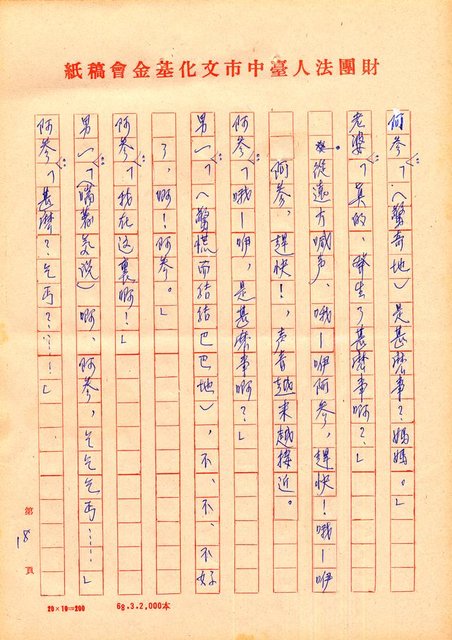 財團法人臺中市文化基金會稿紙
阿參：「（驚奇地）是甚麼事？媽媽。」
老婆：「真的，發生了甚麼事啊？」
※從遠方喊声、哦—咿阿參，趕快！哦—咿
阿參，趕快！，声音越来越接近。
阿參：「哦—咿，是甚麼事啊？」
男一：「（驚慌而結結巴巴地），不、不、不好
了，啊！阿參。」
阿參：「我在这裏啊！」
男一：「（喘着气说）啊、阿參，乞乞乞丐……」
阿參：「甚麼？乞丐？……！」
第18頁
20×10=200
68.3.2,000本